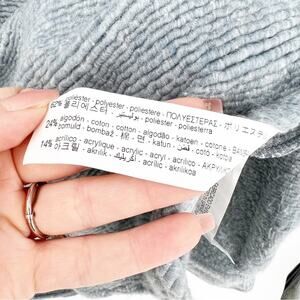 poliester - polyester - poliestere - ΠΟΛΥΕΣΤΕΡΑΣ - ポリエステ
62% 폴리에스터 - بوليستر - poliester - poliesterra
algodón - coton - cotton - algodão - katoen - cotone - ΒΑΜΒ
24% bombaž - 棉 - 면 - katun - قطن - cotó - kotoia
acrílico - acrylique - acrylic - acryl - acrilico - ΑΚΡΥΛ
14% 아크릴 - akrilik - أكريليك - acrílic - akrilikoa